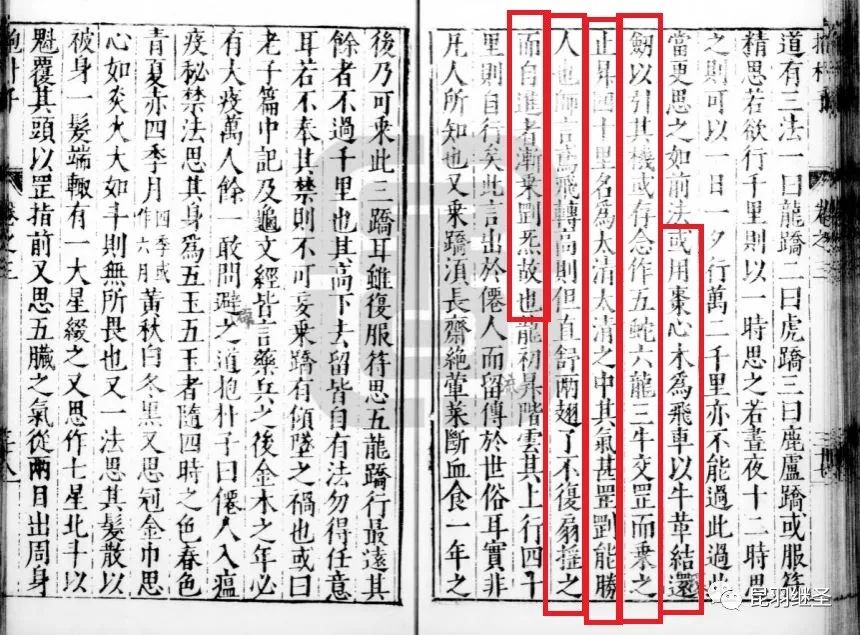 卷之三
道有三法一曰龍蹻二曰虎蹻三曰鹿盧蹻或服符
精思若欲行千里則以一時思之若晝夜十二時思
之則可以一日一夕行萬二千里亦不能過此過此
當更思之如前法或用棗心木為飛車以牛革結還
劒以引其機或存念作五蛇六龍三牛交罡而乘之
止昇四十里名為太清太清之中其氣甚罡剛能勝
人也師言鳶飛轉高則但直舒兩翅了不復扇揺之
而自進者漸乘剛炁故也龍初昇階雲其上行四十
里則自行矣此言出於僊人而留傳於世俗耳實非
流
凡人所知也又乘蹻湏長齋絶葷菜斷血食一年之
後乃可乘此三蹻耳雖復服符思五龍蹻行最遠其
餘者不過千里也其高下去留皆自有法勿得任意
耳若不奉其禁則不可妄乘蹻有傾墜之禍也或曰
老子篇中記及龜文經皆言藥兵之後金木之年必
有大疫萬人餘一敢問避之道抱朴子曰僊人入瘟
疫秘禁法思其身為五玉五玉者隨四時之色春色
青夏赤四季月四季或作六月黃秋白冬黑又思冠金巾思
心如炎火大如斗則無所畏也又一法思其髮散以
被身一髮端輙有一大星綴之又思作七星北斗以
魁覆其頭以罡指前又思五臟之氣從兩目出周身
抱朴子 卷之三
昆羽继圣